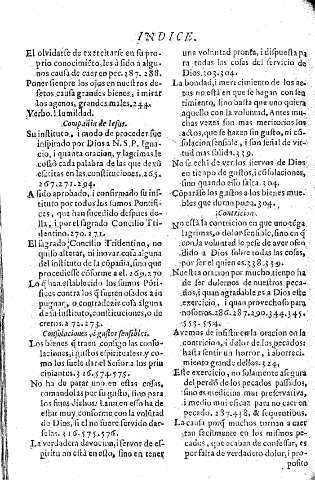 INDICE.
El olvidarse de exercitarse en su pro-
prio conocimiẽto, les à sido a algu-
nos causa de caer en pec. 387. 288.
Poner siempre los ojos en nuestros de-
fetos, causa grandes bienes, i mirar
los agenos, grandes males, 244.
Verbo. Humildad.
Compañia de Iesus.
Su instituto, i modo de proceder fue
inspirado por Dios a N. S. P. Igna-
cio, i quanta oracion, y lagrimas le
costò cada palabra de las que dexò
escritas en las constituciones, 265.
267. 271. 294.
A sido aprobado, i confirmado su ins-
tituto por todos los sumos Pontifi-
ces, que han sucedido despues do-
lla, i por el sagrado Concilio Tri-
dentino. 270. 271.
El sagrado Concilio Tridentino, no
quiso alterar, ni inovar cosa alguna
del instituto de la cõpañia, sino que
procediesse cõforme a el. 269. 270
Lo q̃ han establecido los sumos Põti-
fices contra los q̃ fueren osados a im-
pugnar, o contradezir cosa alguna
de su instituto, constituciones, o de-
cretos. 272. 273.
Consolaciones, ò gustos sensibles.
Los bienes q̃ traen consigo las conso-
laciones, i gustos espirituales: y co-
mo los suele dar el Señor a los prin-
cipiantes. 316. 574. 575.
No ha de parar uno en estas cosas,
tomandolas por su gusto, sino para
los fines dichos: i aun en esso ha de
estar muy conforme con la volũtad
de Dios, si el no fuere servido dar-
selas. 316. 575. 576.
La verdadera devocion, i fervor de es-
piritu no està en esto, sino en tener
una voluntad pronta, i dispuesta pa
ra todas las cosas del servicio de
Dios. 303. 304.
La bondad, i merecimiento de los ac-
tos no està en que se hagan con sen-
timiento, sino basta que uno quiera
aquello con la voluntad. Antes mu-
chas vezes son mas meritorios los
actos, que se hazen sin gusto, ni cõ-
solacion sensible, i son señal de vir-
tud mas solida. 339.
No se echa de ver los siervos de Dios
en tiempo de gustos, i cõsolaciones,
sino quando ellos falta. 304.
Cõparãse los gustos a los bienes mue-
bles que duran poco. 304.
Contricion.
No està la contricion en que uno tẽga
lagrimas, o dolor sensible, sino en q̃
con la voluntad le pese de aver ofen
dido a Dios sobre todas las cosas,
por ser quien es. 338. 339.
Nuestra oracion por mucho tiempo ha
de ser dolernos de nuestros peca-
dos, i quan agradable es a Dios este
exercicio, i quan provechoso para
nosotros. 286. 287. 290. 344. 345.
553. 554.
Avemos de insistir en la oracion en la
contricion, i dolor de los pecados:
hasta sentir un horror, i aborreci-
miento grande dellos. 324.
Este exercicio, no solamente asegura
del perdõ de los pecados passados,
sino es medicina mas preservativa,
i medio mui eficaz para no caer en
pecado. 287. 438. & sequentibus.
La causa porq̃ muchos tornan a caer
tan facilmente en los mismos pe-
cados, que acaban de confessar, es
por falta de verdadero dolor, i pro-
posito